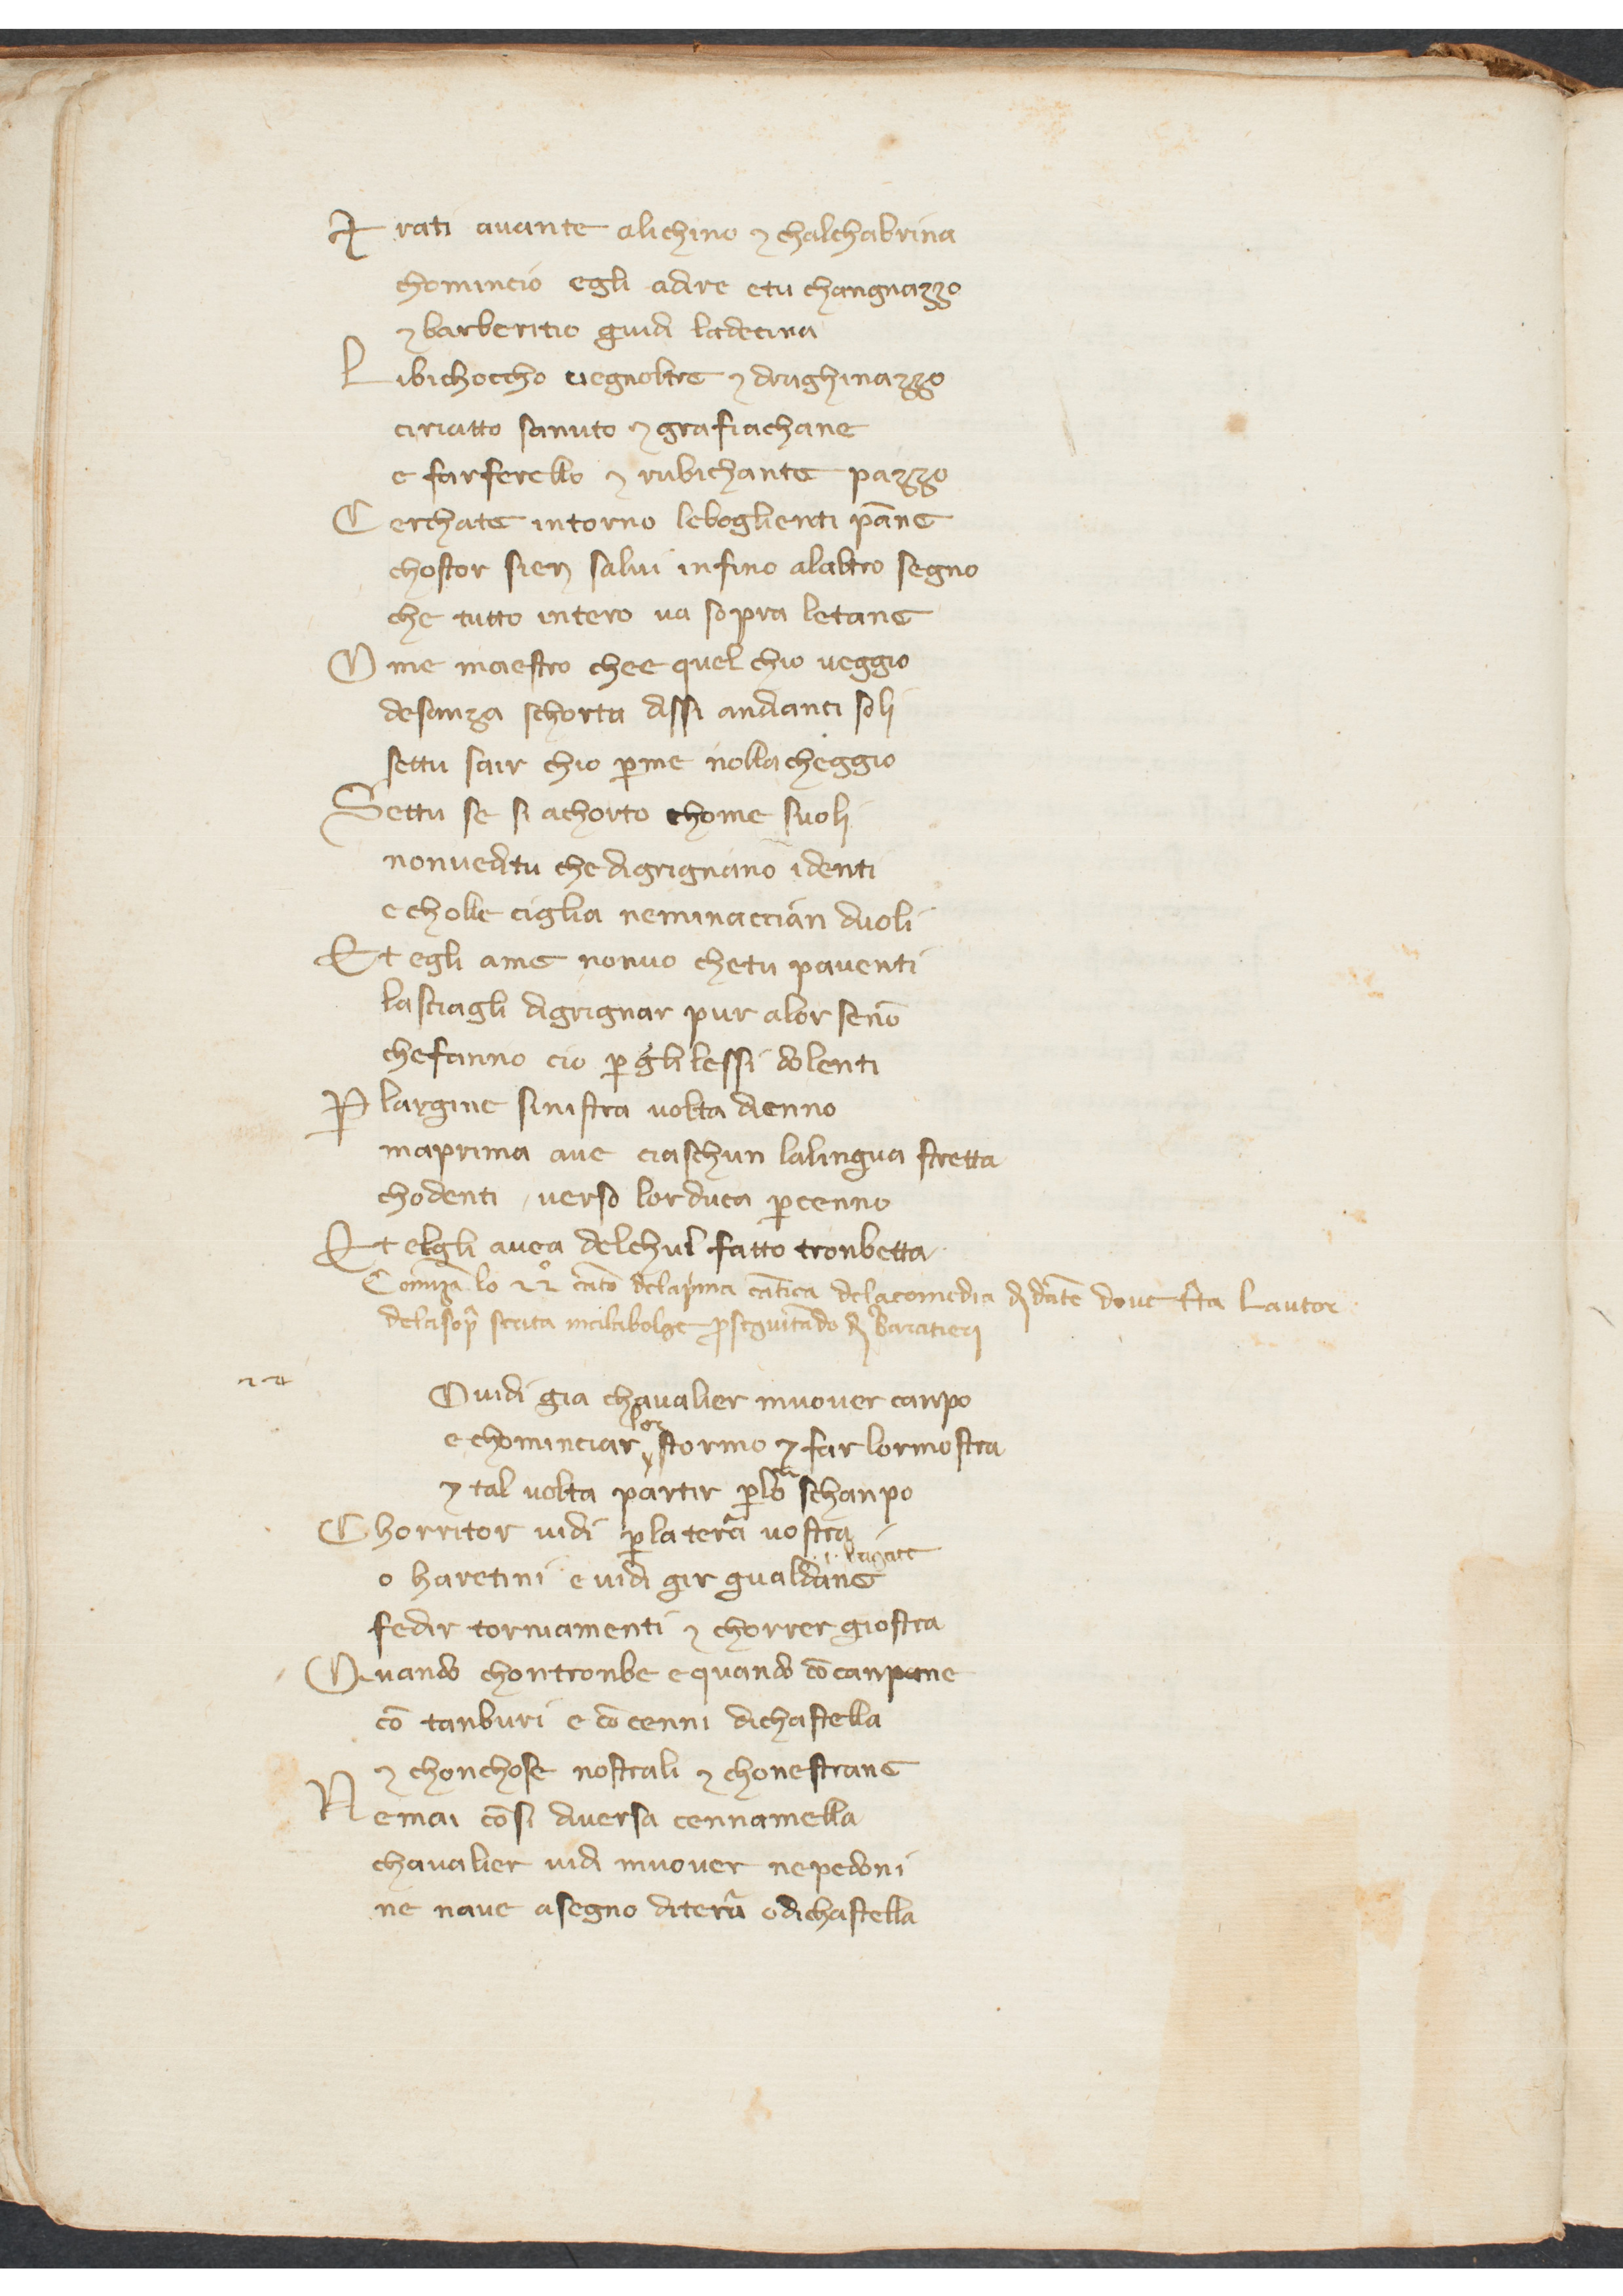 T rati avante alichino ⁊ chalchabrina
chomincio egli adire etu changnazzo
⁊ barberitio guidi ladecina
L ibichoccho vegnoltre ⁊ draghinazzo
ciriatto sanuto ⁊ grafiachane
e farferello ⁊ rubichante pazzo
C erchate intorno leboglienti pāne
chostor sien salui infino alaltro segno
che tutto intero ua sopra letane
O me maestro chee quel chio ueggio
desanza schorta dissi andianci soli
settu sair chio ꝑme nolla cheggio
Settu se si achorto chome suoli
nonueditu che digrignano identi
e cholle ciglia neminaccian duoli
Et egli ame nonuo chetu pauenti
lasciagli digrignar pur alor senō
chefanno cio ꝑ gli lessi dolenti
P largine sinistra uolta dienno
maprima aue ciaschun lalingua stretta
chodenti / verso lorduca ꝑcenno
Et elgli auea delchul fatto tronbetta
Comīza lo 22° cāto delapima cātica delacomedia di dāte doue tta Lautor
delasopͣ scrita malabolge ꝓseguitādo di baratieri
22
O uidi gia chaualier muouer canpo
e chominciar lor stormo ⁊ far lormostra
⁊ tal uolta partir ꝑlō schanpo
C horritor uidi ꝑla terā uostra
.i. brigate
o haretini e uidi gir gualdane
fedir torniamenti ⁊ chorrer giostra
Quando chontronbe e quando cō canpane
cō tanburi e cō cenni dichastella
⁊ chonchose nostrali ⁊ chonestrane
N emai cōsi diuersa cennamella
chaualier uidi muouer nepedoni
ne naue asegno diterā odichastella